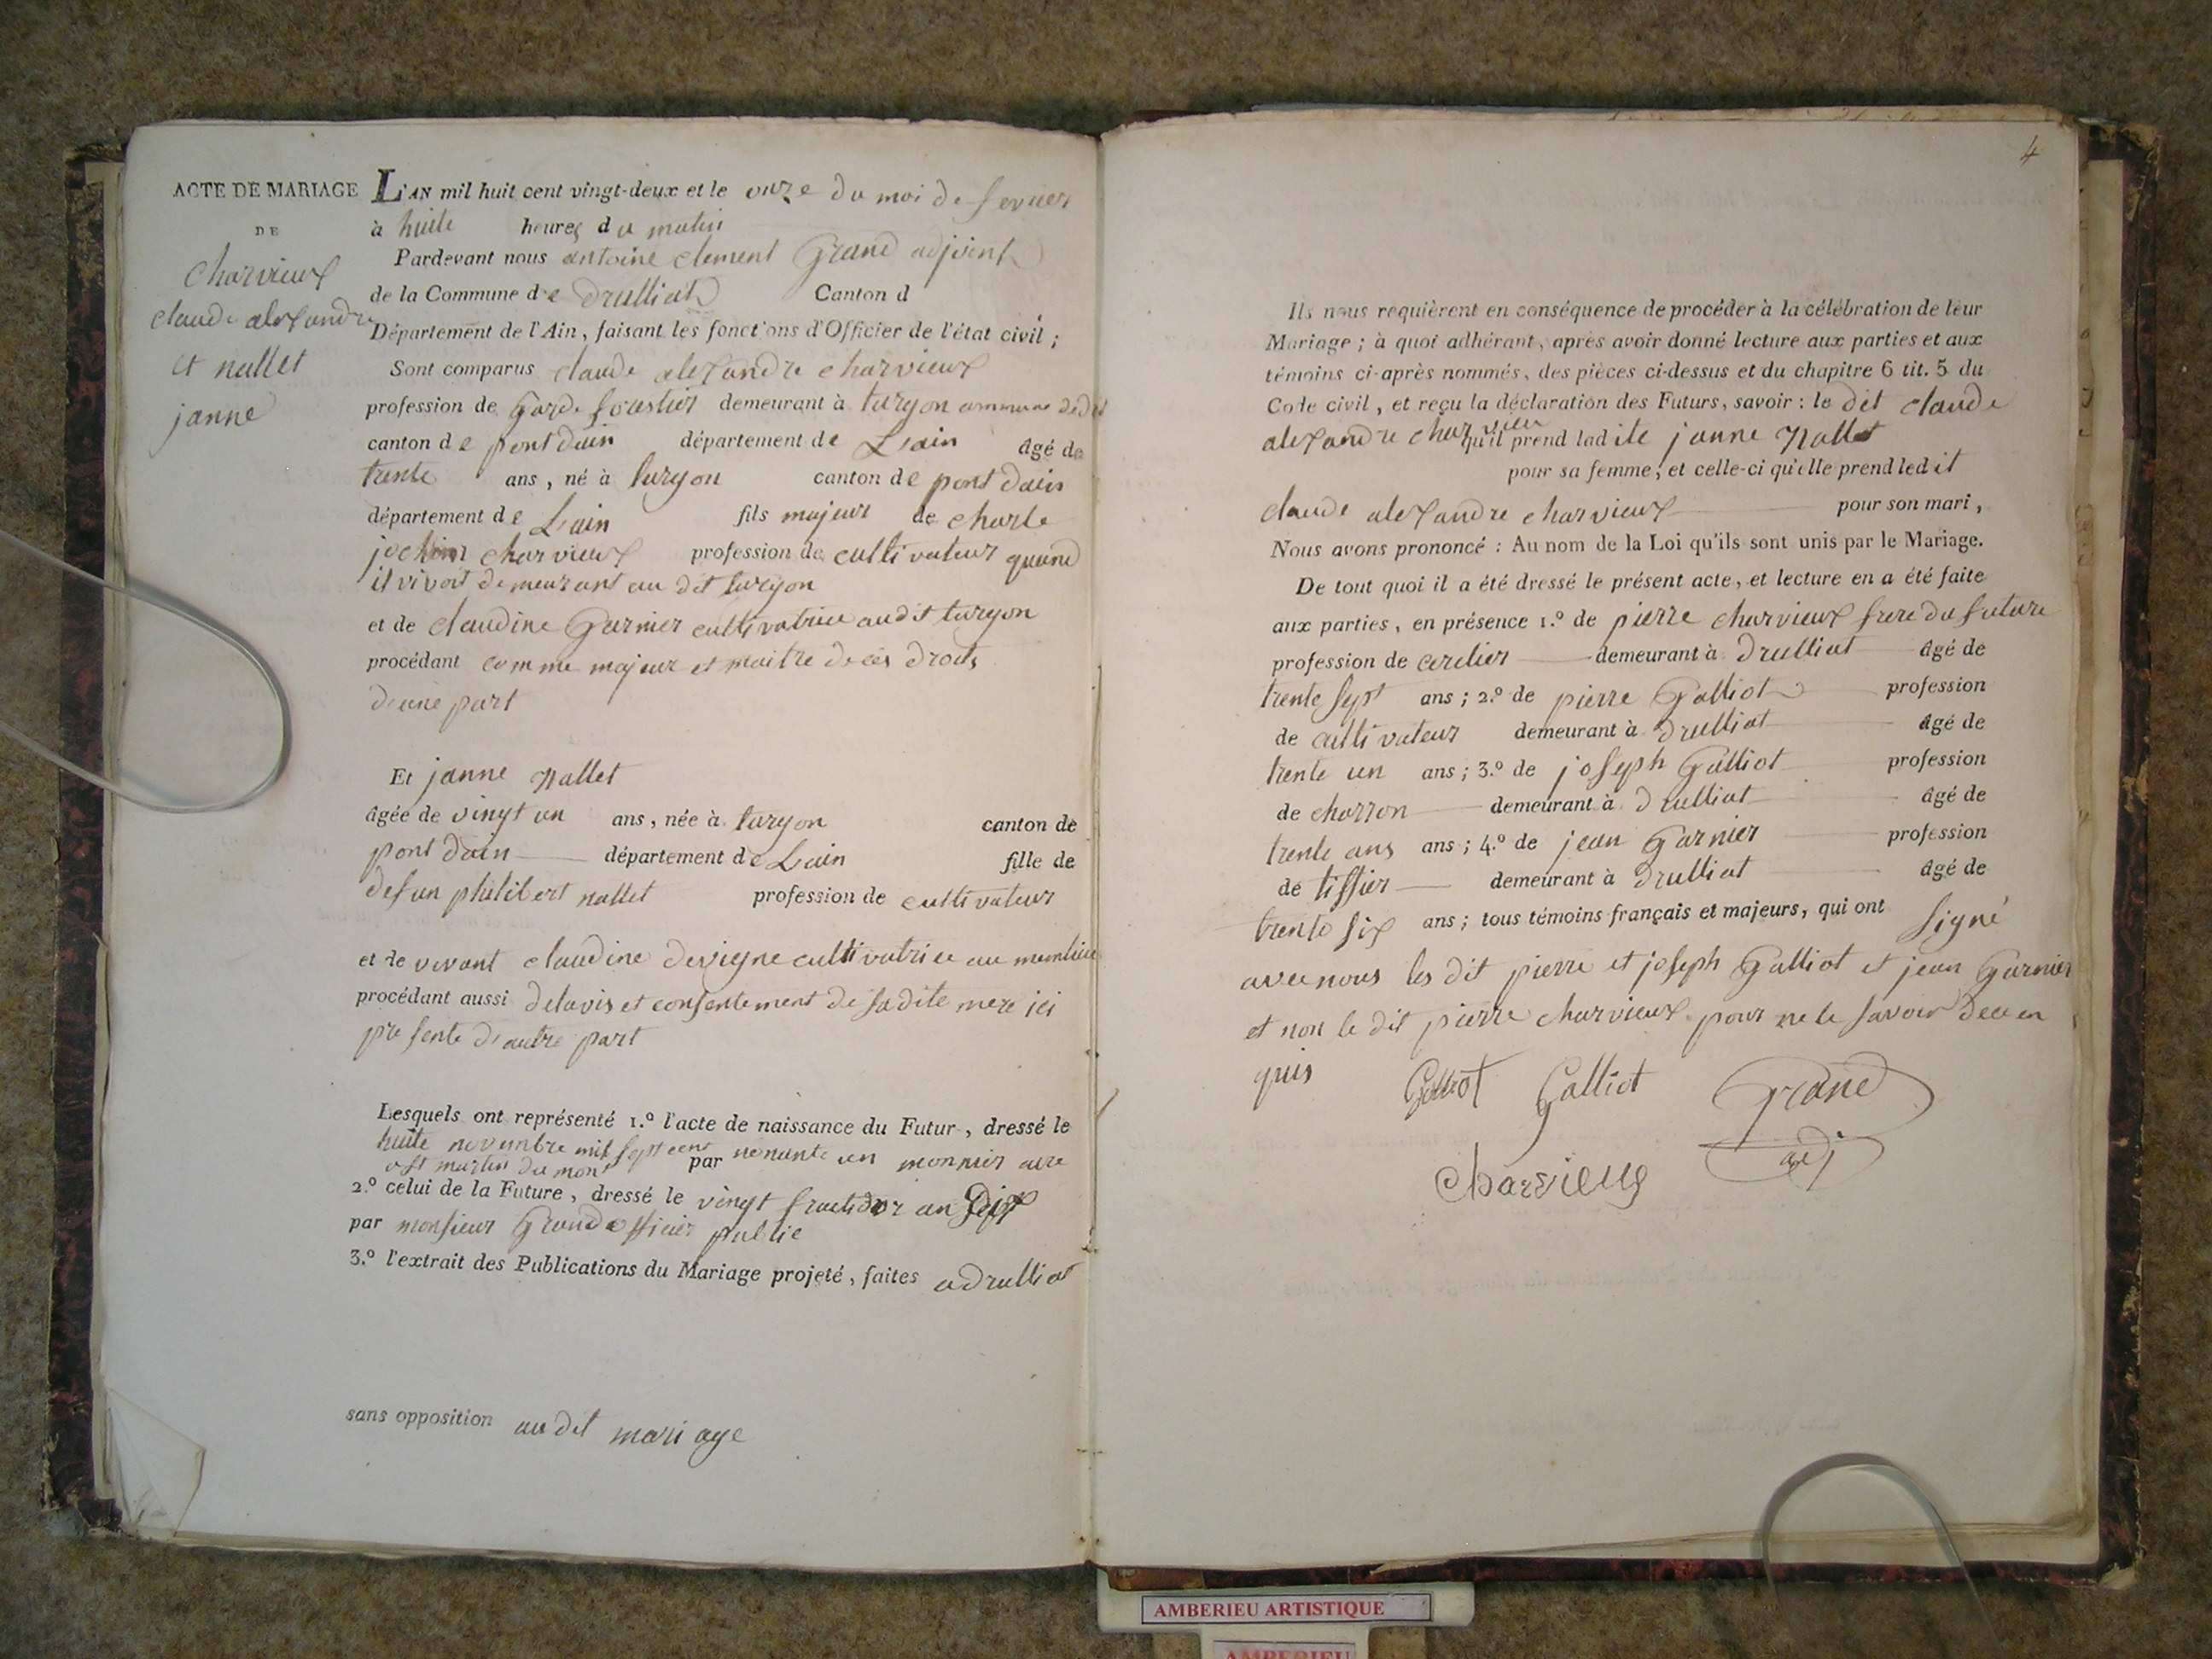 ACTE DE MARIAGE
DE
Charvieux
claude alexandre
et nallet
janne
L'AN mil huit cent vingt-deux et le onze du moi de fevrier
à huite heures du matin
Pardevant nous antoine clement Grand adjoint
de la Commune de Druilliat Canton d
Département de l'Ain, faisant les fonctions d'Officier de l'état civil ;
Sont comparus claude alexandre charvieux
profession de garde forestier demeurant à turgon commune dudit
canton de pont dain département de L'ain âgé de
trente ans, né à turgon canton de pont dain
département de L'ain fils majeur de charle
charvieux profession de cultivateur quand
il vivoit demeurant au dit turgon
et de claudine Garnier cultivatrice audit turgon
procédant comme majeur et maitre de ces droits
d'une part
Et janne Nallet
âgée de vingt un ans, née à turgon canton de
pont dain département de L'ain fille de
defun philibert nallet profession de cultivateur
et de vivant claudine devigne cultivatrice au meme lieu
procédant aussi delavis et consentement de sadite mere ici
presente d'autre part
Lesquels ont représenté 1.º l'acte de naissance du Futur, dressé le
huite novembre mil sept cent nonante un monnier cure
a st martin du mont par
2.º celui de la Future, dressé le vingt fructidor an
par monsieur Grand officier public
3.º l'extrait des Publications du Mariage projeté, faites a druilliat
sans opposition au dit mariage
4
Ils nous requièrent en conséquence de procéder à la célébration de leur
Mariage ; à quoi adhérant, après avoir donné lecture aux parties et aux
témoins ci-après nommés, des pièces ci-dessus et du chapitre 6 tit. 5 du
Code civil, et reçu la déclaration des Futurs, savoir : le dit claude
alexandre charvieux qu'il prend ladite janne Nallet
pour sa femme, et celle-ci qu'elle prend ledit
claude alexandre charvieux pour son mari,
Nous avons prononcé : Au nom de la Loi qu'ils sont unis par le Mariage.
De tout quoi il a été dressé le présent acte, et lecture en a été faite
aux parties, en présence 1.º de pierre charvieux frere du future
profession de cordier demeurant à druilliat âgé de
trente sept ans ; 2.º de pierre Galliot profession
de cultivateur demeurant à druilliat âgé de
trente un ans ; 3.º de joseph Galliot profession
de charron demeurant à druilliat âgé de
trente ans ans ; 4.º de jean Garnier profession
de tissier demeurant à druilliat âgé de
trente six ans ; tous témoins français et majeurs, qui ont signé
avec nous les dit pierre et joseph Galliot et jean Garnier
et non le dit pierre charvieux pour ne le savoir de ce en
quis
Galliot Galliot Grand
adj
charvieux
AMBERIEU ARTISTIQUE
AMBERIEU